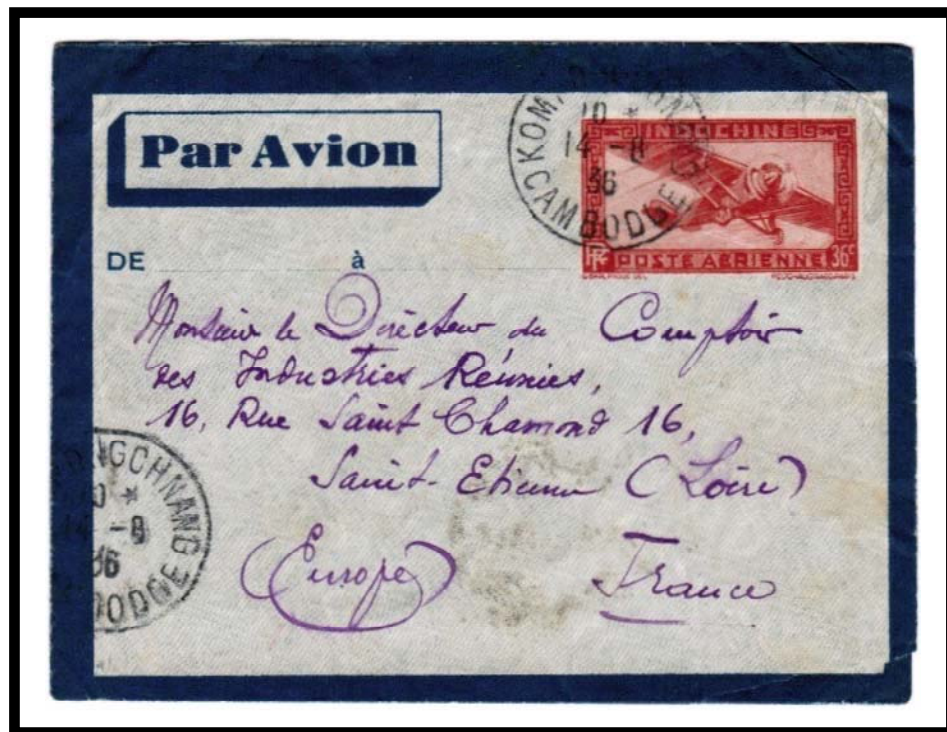 Par Avion
DE à
INDOCHINE
RF POSTE AÉRIENNE 36c
10 *
14 -8
36
CAMBODGE
Monsieur le Directeur du Comptoir
des Industries Réunies,
16, Rue Saint Chamond 16,
Saint-Etienne (Loire)
(Europe) France
NGCHNANG
10 *
14 -8
36
ODGE